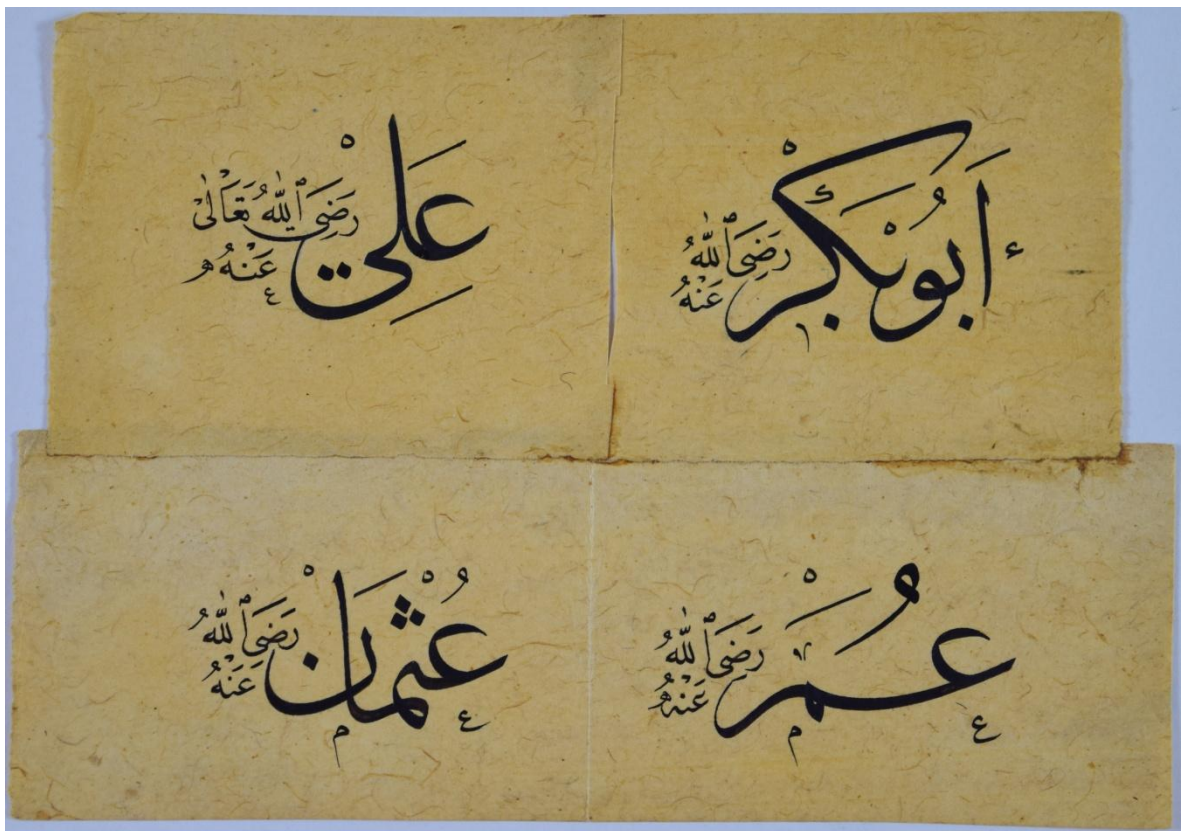 أَبُو بَكْرْ رَضِيَ ٱللّٰهُ
عَنْهُ
عَلِيْ رَضِيَ ٱللّٰهُ تَعَالٰى
عَنْهُ
عُمَرْ رَضِيَ ٱللّٰهُ
عَنْهُ
عُثْمَانْ رَضِيَ ٱللّٰهُ
عَنْهُ